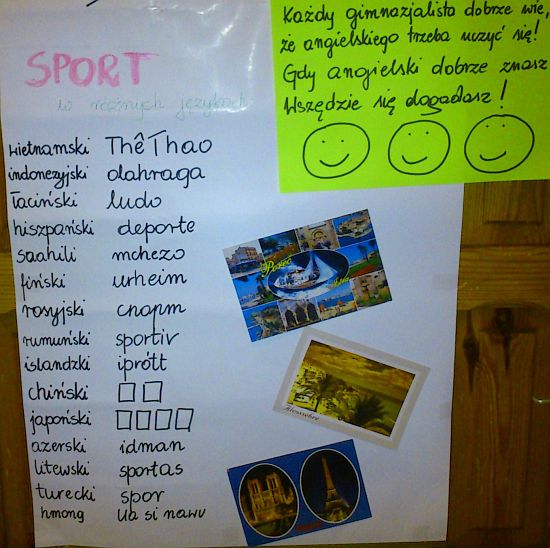 SPORT
w różnych językach
wietnamski Thê Thao
indonezyjski olahraga
łaciński ludo
hiszpański deporte
saahili mchezo
fiński urheim
rosyjski спорт
rumuński sportiv
islandzki iprótt
chiński □ □
japoński □ □ □ □
azerski idman
litewski sportas
turecki spor
hmong ua si nawv
Każdy gimnazjalista dobrze wie,
że angielskiego trzeba uczyć się!
Gdy angielski dobrze znasz
Wszędzie się dogadasz!
Poreč